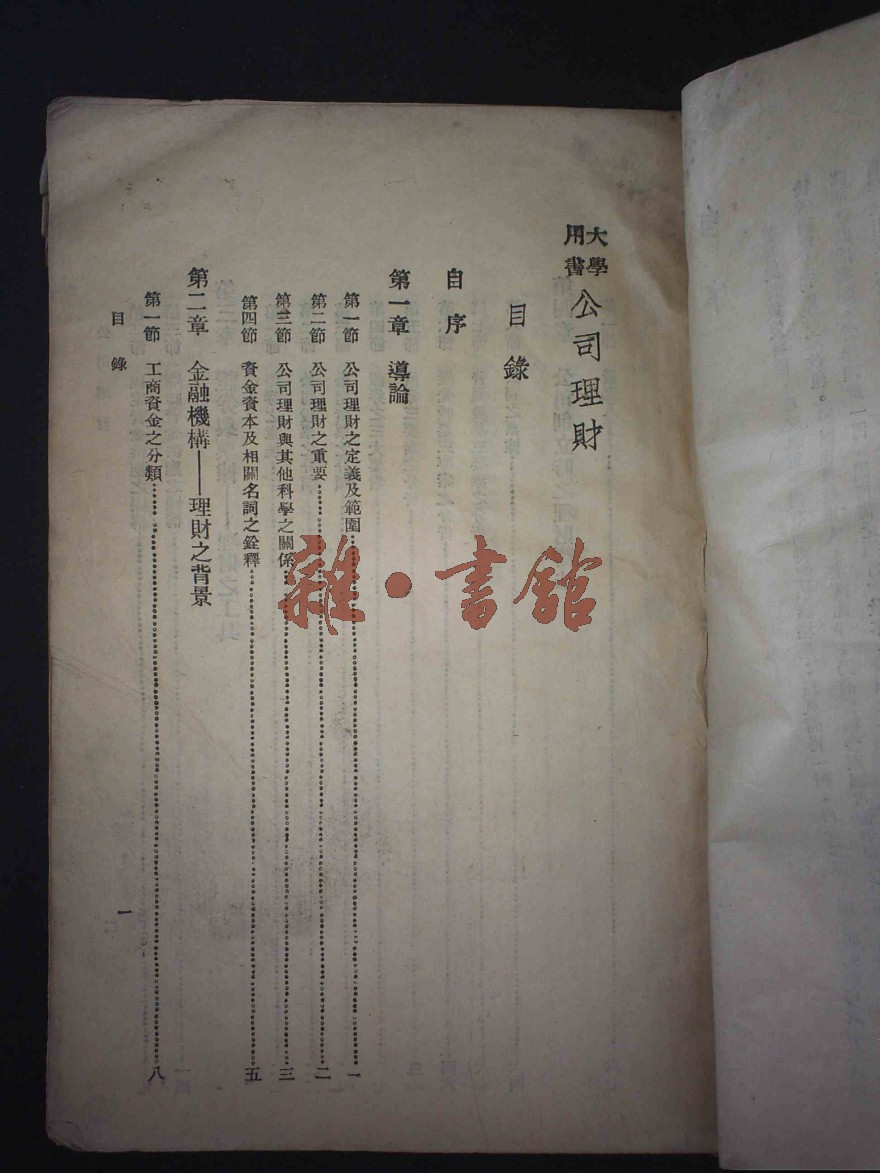 大學用書 公司理財
目錄
自序
第一章 導論
第一節 公司理財之定義及範圍……一
第二節 公司理財之重要……二
第三節 公司理財與其他科學之關係……三
第四節 資金資本及相關名詞之銓釋……五
第二章 金融機構——理財之背景
第一節 工商資金之分類……八
目錄
一
雜·書館